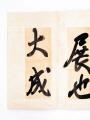 展也
大成